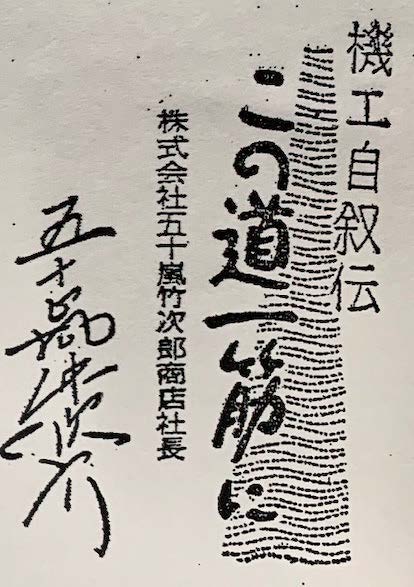 機工自叙伝
この道一筋に
株式会社五十嵐竹次郎商店社長